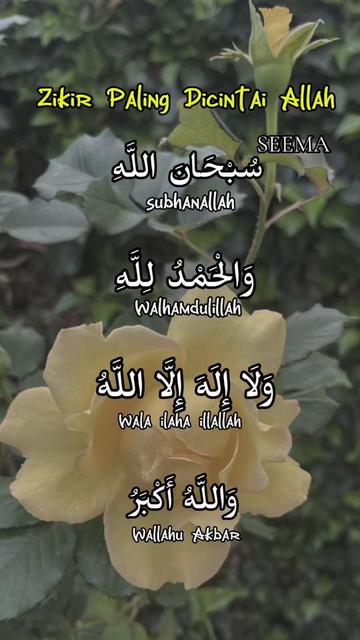 Zikir Paling Dicintai Allah
SEEMA
سُبْحَانَ اللَّهِ
subhanallah
وَالْحَمْدُ لِلَّهِ
Walhamdulillah
وَلَا إِلَهَ إِلَّا اللَّهُ
Wala ilaha illallah
وَاللَّهُ أَكْبَرُ
Wallahu Akbar